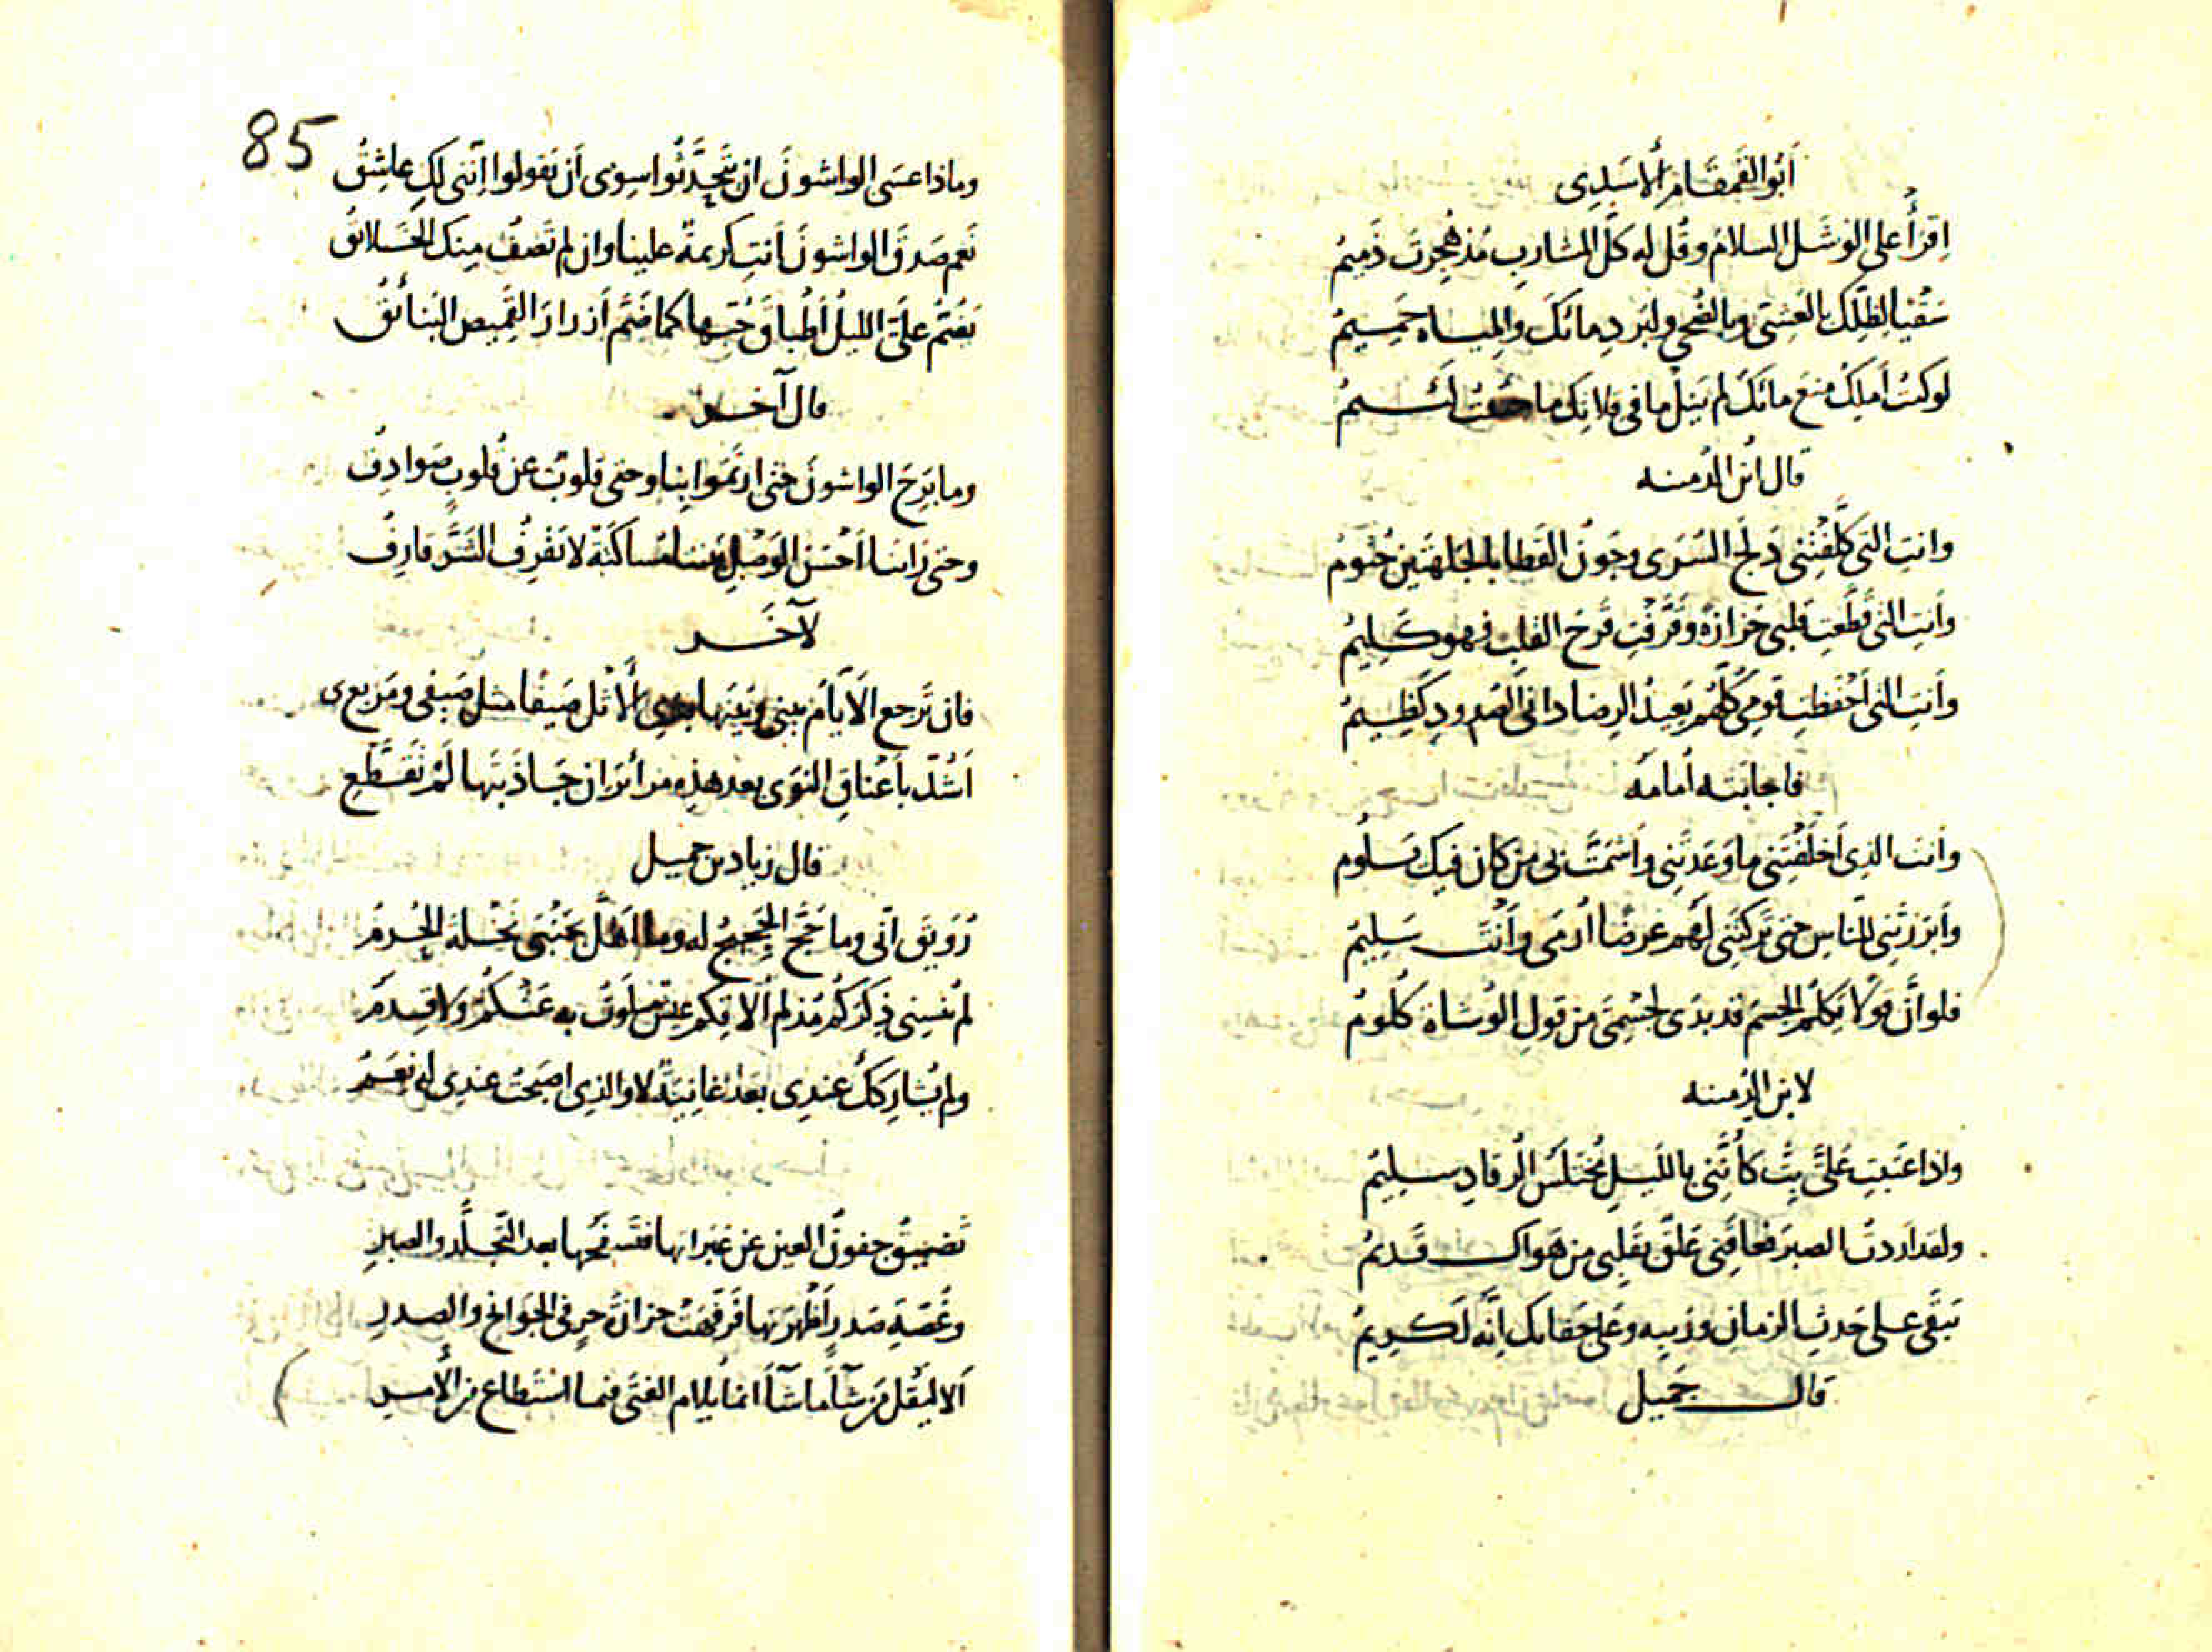 أَبُو القَمقَام الأَسَدِى
اِقرَأ على الوَشَل السلامَ وقُل له كلّ المشاربِ مُذ هُجِرتَ ذَمِيمُ
سَقْيًا لظِلّك بالعَشِىّ وبالضُحى ولبَردِ مائكَ والمياه حَمِيمُ
لو كنتُ أملِكُ مَنعَ مائكَ لم يَنل ما فى قلاتِك ما حييتُ لئيمُ
قال ابن الدُمينه
وانتِ التى كلَّفْتِنى دَلَجَ السُرَى وجُونُ القَطا بالجَلهَتَينِ جُثومُ
وأنتِ التى قَطَّعتِ قَلبى حَزازةً وقَرَّفْتِ قَرحَ القلبِ فهو كَلِيمُ
وأنتِ التى أَحْفَظتِ قومى فكُلّهم بعيدُ الرِضا دانى الصُدودِ كَظِيمُ
فاجابَته أمامَه
وأنتَ الذى أَخلَفْتَنى ما وعَدتَنِى وأَشمَتَّ بى من كان فيكَ يَلُوم
وأَبرَزتَنِى للنّاسِ حتى تَركتَنِى لَهُم غرضًا أُرمَى وأَنتَ سَلِيمُ
فلو أنَّ قولًا يَكلمُ الجسمَ قد بدَى لجسْمِىَ من قولِ الوُشاةِ كُلُومُ
لابن الدُمينه
واذا عَتَبتِ علىَّ بِتُّ كأنّنى بالليلِ مُختَلَسُ الرقادِ سليمُ
ولقد أردتُ الصبرَ فعاقَنِى علقٌ بقَلبِى من هَواكِ قديمُ
يَبقَى على حَدثِ الزمانِ ورَيبِه وعَلى جَفائِك إنّه لَكَرِيمُ
قال جَمِيل
85
وماذا عسَى الواشونَ ان يتحدَّثُوا سِوى أن يَقولوا اِنّنى لكِ عاشِقُ
نَعم صَدقَ الواشونَ أنتِ كريمةٌ علينا وان لم تَصفُ مِنك الخَلائقُ
يَضُمّ علىَّ الليلُ أطباقَ حُبّها كما ضَمّ أزرارَ القَمِيص البَنائقُ
قال آخر
وما بَرِحَ الواشونَ حتى ارتَمَوا بِنا وحتى قلوبٌ عن قُلوبٍ صَوادِفُ
وحتى رأينا أَحْسَن الوَصْلِ بيننا مُساكتَةً لا يَقرِفُ الشَرَّ قارِفُ
لآخَر
فان تَرجع الأَيّامُ بينى وبَينَها بذى الأَثل صَيفًا مثل صَيفى ومَربعى
أَشُدّ بأَعْناقِ النَوى بعد هذه مرائرَ ان جَاذَبتَها لَمْ تَقَطَّعِ
قال زياد بن حميل
رُوَيقَ انّى وما حَجَّ الحَجيجُ له وما أهلَّ بجَنْبَى نَخْلةَ الحُرمُ
لم يُنسِنى ذِكرَكُم مُذ لم أُلاقِكم عيشٌ سَلَوتُ به عَنكُمْ وَلا قِدَمُ
ولم يُشارِكك عندِى بَعدُ غانِيةٌ لا والذى اصبَحتْ عندِى له نِعَمُ
تَضيقُ جفونُ العين عن عَبَراتها فتَسفَحُها بعد التّجلُّد والصبرِ
وغُصَّةِ صَدرٍ أَظْهَرَتها فَرَفَّهَت حزازةَ حرٍ فى الجَوانحِ والصدرِ
ألا ليَقُل مَن شآءَ ما شآءَ انما يُلام الفَتى فيما استَطاع من الأَمرِ